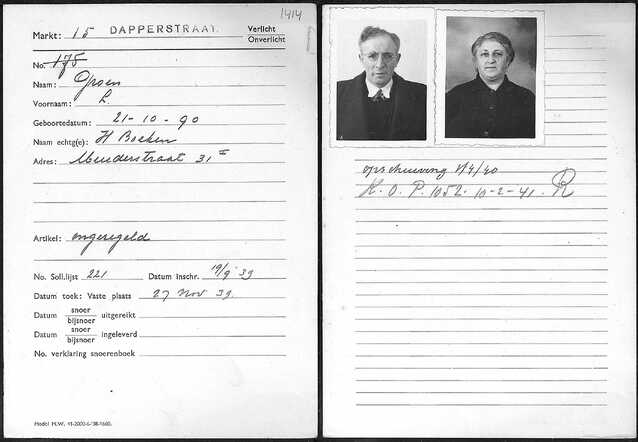 1414
Markt: 15 DAPPERSTRAAT. Verlicht
Onverlicht
No. 175
Naam: Groen
Voornaam: L.
Geboortedatum: 21-10-90
Naam echtg(e): H Boeken
Adres: straat 31 II
Artikel: ongeregeld
No. Soll.lijst 221 Datum Inschr. 19/9 '39
Datum toek: Vaste plaats 27 Nov 39.
Datum snoer
bijsnoer uitgereikt
Datum snoer
bijsnoer ingeleverd
No. verklaring snoerenboek
Model M.W. 41-2000-6-'38-1680.
opschuiving /4/40
K.O.P. 1052. 10-2-41. R